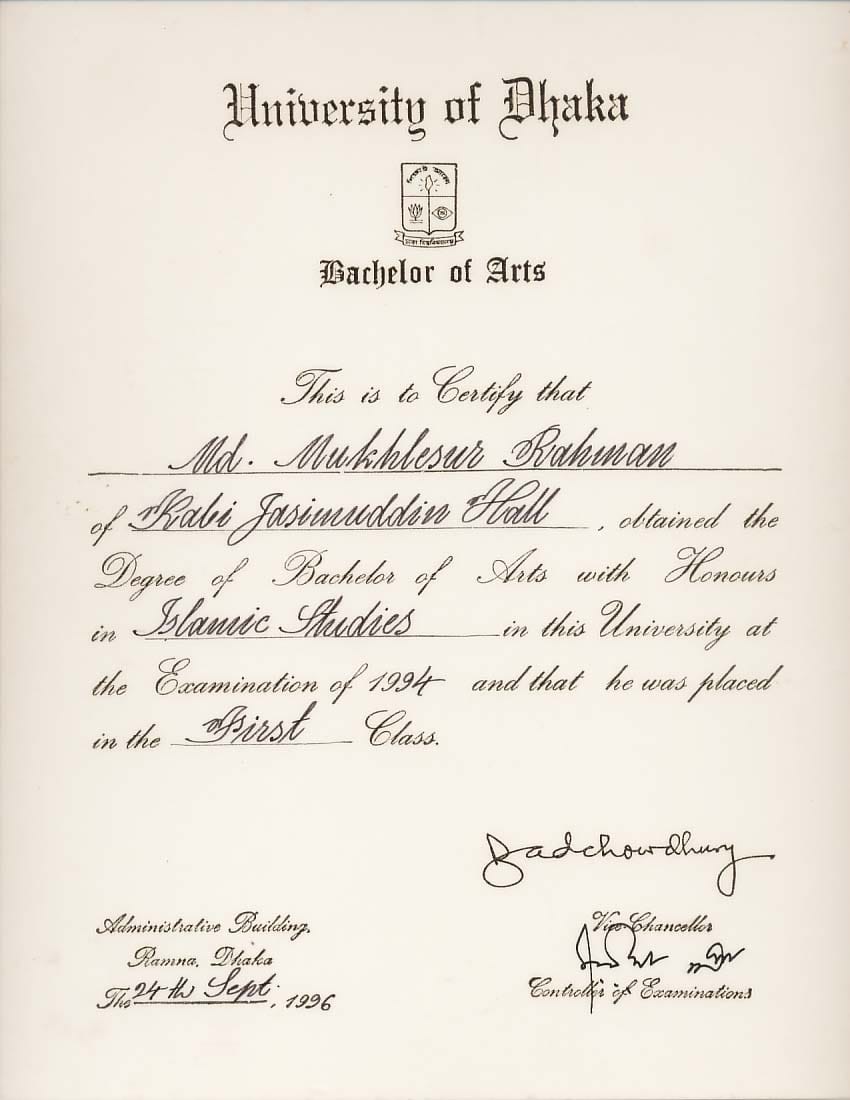 University of Dhaka
Bachelor of Arts
This is to Certify that
Md. Mukhlesur Rahman
of Kabi Jasimuddin Hall, obtained the
Degree of Bachelor of Arts with Honours
in Islamic Studies in this University at
the Examination of 1994 and that he was placed
in the First Class.
Vice-Chancellor
Administrative Building,
Ramna, Dhaka
The 24th Sept., 1996
Controller of Examinations